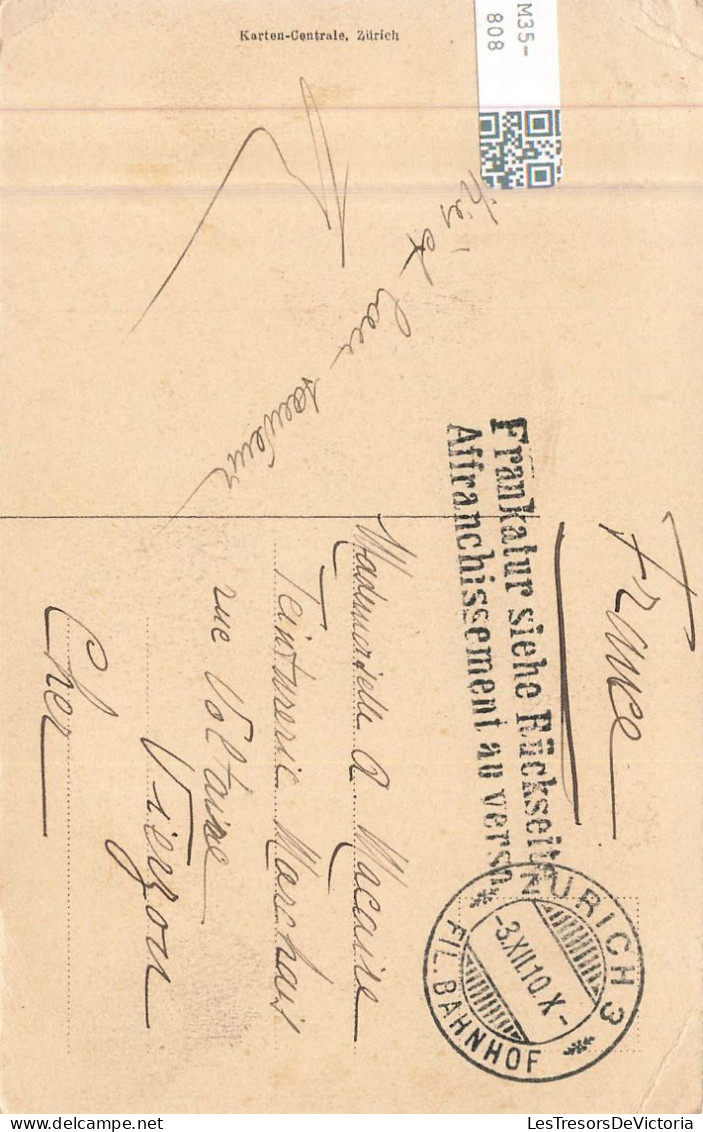 Karten-Centrale, Zürich
M35-
808
et
France
Frankatur siehe Rückseite
Affranchissement au verso
ZÜRICH 3
-3.XII.10.X-
FIL. BAHNHOF
Mademoiselle A Macaire
Teinturerie Marchais
rue Voltaire
Vierzon
Cher
LesTresorsDeVictoria